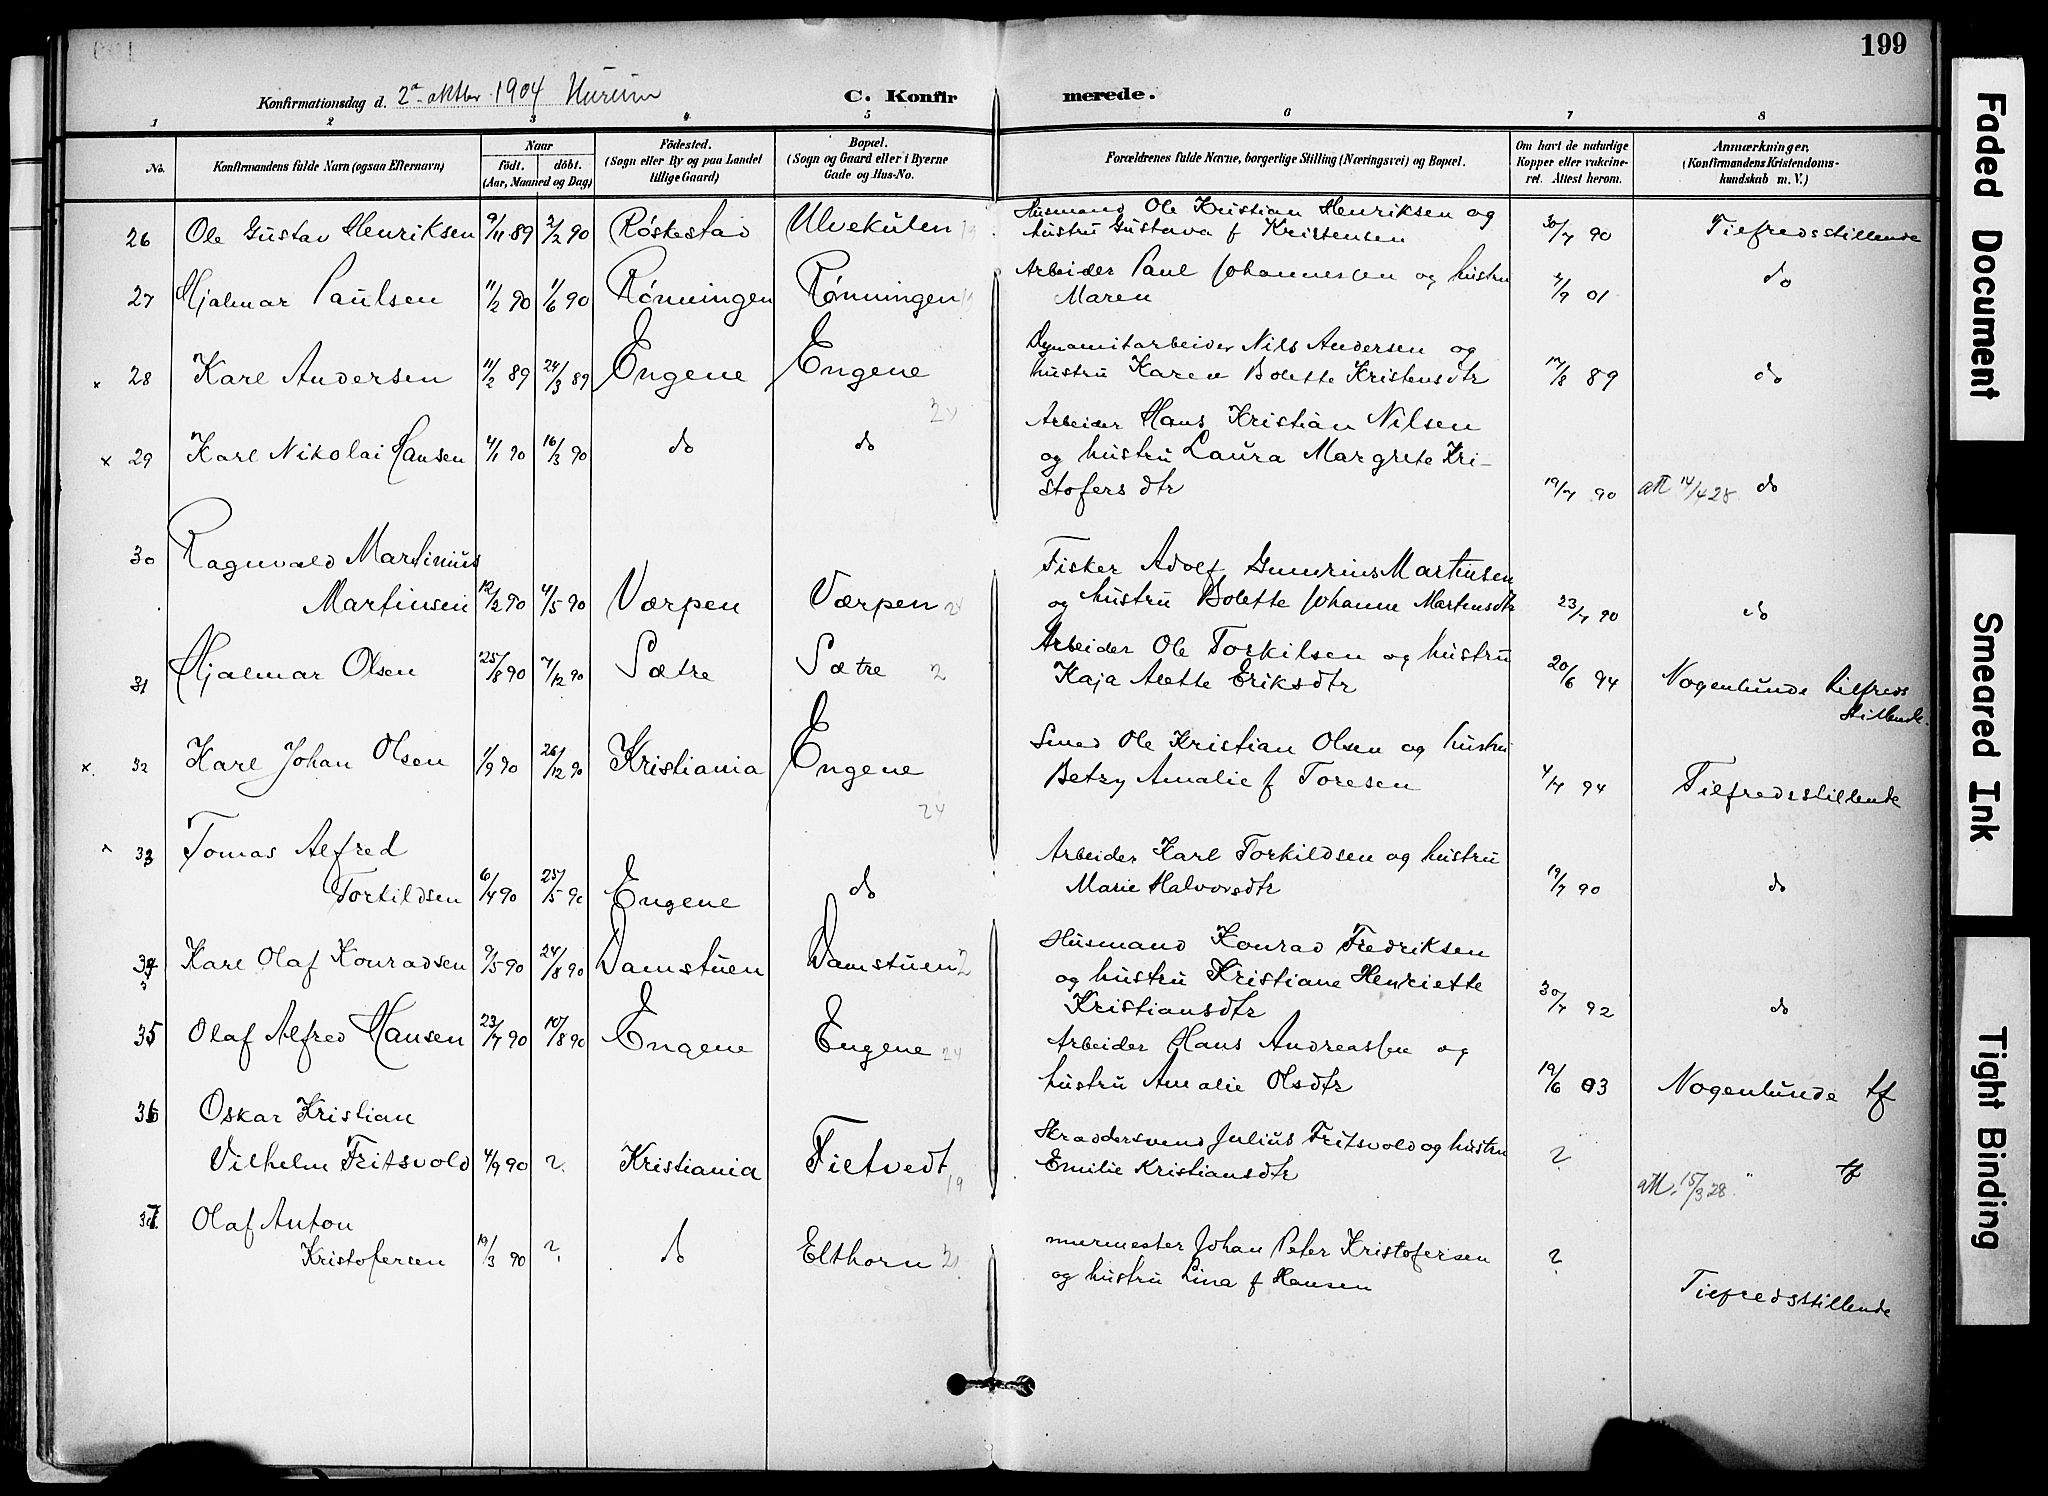 199
Konfirmationsdag d. 2den oktbr 1904 Hurum
C. Konfirmerede.
1 2 3 4 5 6 7 8
No. Konfirmandens fulde Navn (ogsaa Efternavn) Naar født. døbt. (Aar, Maaned og Dag) Fødested. (Sogn eller By og paa Landet tillige Gaard) Bopæl. (Sogn og Gaard eller i Byerne Gade og Hus-No. Forældrenes fulde Navne, borgerlige Stilling (Næringsvei) og Bopæl. Om havt de naturlige Kopper eller vakcineret. Attest herom. Anmærkninger. (Konfirmandens Kristendomskundskab m. V.)
26 Ole Gustav Henriksen 9/11 89 2/2 90 Røskestad Ulvekulen 19 Husmand Ole Kristian Henriksen og
hustru Gustava f Kristensen 30/7 90 Tilfredsstillende
27 Hjalmar Paulsen 11/2 90 1/6 90 Rønningen Rønningen 19 Arbeider Paul Johannessen og hustru
Maren 2/9 01 do
x 28 Karl Andersen 11/2 89 24/3 89 Engene Engene 24 Dynamitarbeider Nils Andersen og
hustru Karen Bolette Kristensdtr 17/8 89 do
x 29 Karl Nikolai Hansen 4/1 90 16/3 90 do do Arbeider Hans Kristian Nilsen
og hustru Laura Margrete Kri-
stofers dtr 19/7 90 att 14/4 28 do
30 Ragnvald Martinius
Martinsen 12/2 90 4/5 90 Værpen Værpen 24 Fisker Adolf Gunerius Martinsen
og hustru Bolette Johanne Martinsdtr 23/7 90 do
31 Hjalmar Olsen 25/8 90 7/12 90 Sætre Sætre 2 Arbeider Ole Torkilsen og hustru
Kaja Alette Eriksdtr 20/6 94 Nogenlunde tilfreds
stillende.
x. 32 Karl Johan Olsen 1/9 90 26/12 90 Kristiania Engene 24 Smed Ole Kristian Olsen og hustru
Betzy Amalie f Toresen 4/7 94 Tilfredsstillende
x 33 Tomas Alfred
Torkildsen 6/4 90 25/5 90 Engene do Arbeider Karl Torkildsen og hustru
Marie Halvorsdtr 19/7 90 do
34 Karl Olaf Konradsen 9/5 90 24/8 90 Damstuen Damstuen 2 Husmand Konrad Fredriksen
og hustru Kristiane Henriette
Kristiansdtr 30/7 92 do
35 Olaf Alfred Hansen 23/7 90 10/8 90 Engene Engene 24 Arbeider Hans Andreassen og
hustru Amalie Olsdtr 19/6 03 Nogenlunde tf
36 Oskar Kristian
Vilhelm Fritsvold 4/9 90 ? Kristiania Filtvedt 19 Skræddersvend Julius Fritsvold og hustru
Emilie Kristiansdtr ? att. 15/3 28. " tf
37 Olaf Anton
Kristofersen 19/3 90 ? do Elthorn murmester Johan Peter Kristofersen
og hustru Lina f Hansen ? Tilfredsstillende
Faded Document
Smeared Ink
Tight Binding